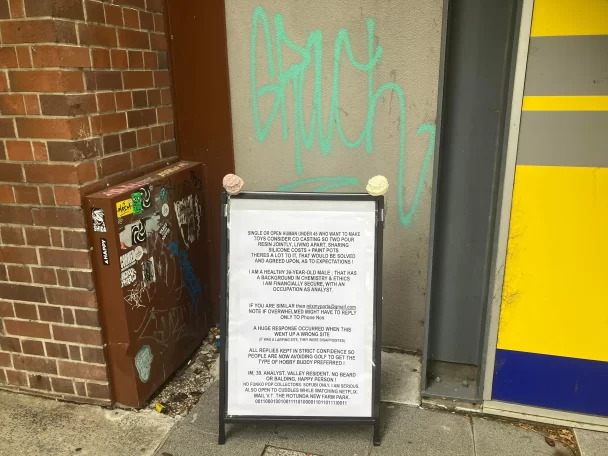 GRach
SINGLE OR OPEN HUMAN UNDER 45 WHO WANT TO MAKE
TOYS CONSIDER CO CASTING SO TWO POUR
RESIN JOINTLY, LIVING APART, SHARING
SILICONE COSTS + PAINT POTS
THERES A LOT TO IT, THAT WOULD BE SOLVED
AND AGREED UPON, AS TO EXPECTATIONS !
I AM A HEALTHY 39-YEAR-OLD MALE ; THAT HAS
A BACKGROUND IN CHEMISTRY & ETHICS
I AM FINANCIALLY SECURE, WITH AN
OCCUPATION AS ANALYST.
IF YOU ARE SIMILAR then
NOTE IF OVERWHELMED MIGHT HAVE TO REPLY
ONLY TO Phone Nos.
A HUGE RESPONSE OCCURRED WHEN THIS
WENT UP A WRONG SITE
ALL REPLIES KEPT IN STRICT CONFIDENCE SO
PEOPLE ARE NOW AVOIDING GOLF TO GET THE
TYPE OF HOBBY BUDDY PREFERRED !
IM, 39, ANALYST, VALLEY RESIDENT, NO BEARD
OR BALDING, HAPPY PERSON !
NO FUNKO POP COLLECTORS. SOFUBI ONLY. I AM SERIOUS.
ALSO OPEN TO CUDDLES WHILE WATCHING NETFLIX.
MAIL V.T. THE ROTUNDA NEW FARM PARK.